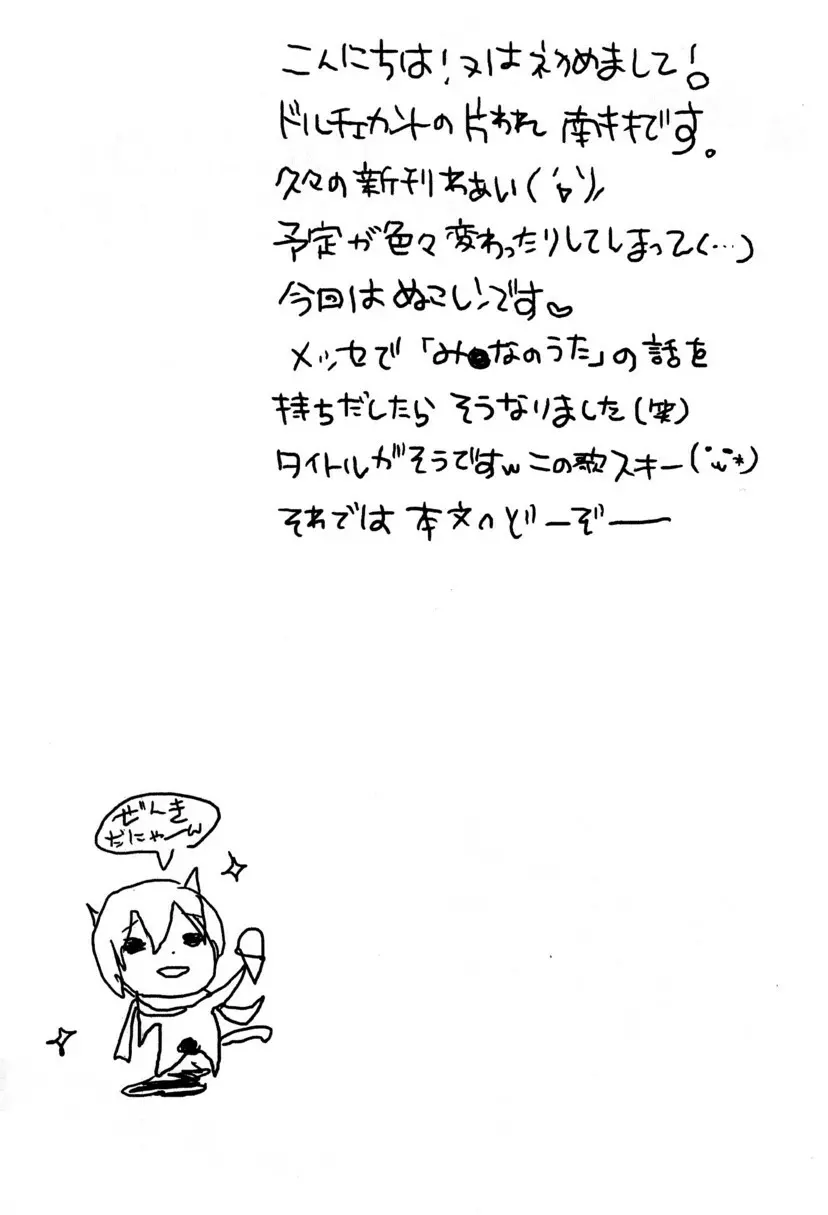 こんにちは!又は初めまして!
ドルチェカントの片われ 南キキです。
久々の新刊わあい('ㅂ')ﾉ
予定が色々変わったりしてしまって(…)
今回はぬこレンです♡
メッセで「み●なのうた」の話を
持ちだしたら そうなりました(笑)
タイトルがそうですw この歌スキー(˙ω˙*)
それでは 本文へどーぞー
ぜんき
だにゃーw